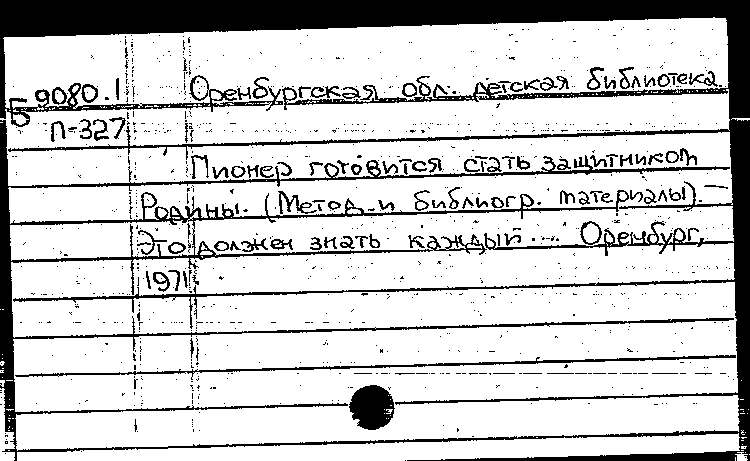 Б 9080.1 Оренбургская обл. детская библиотека
П-327
Пионер готовится стать защитником
Родины. (Метод. и библиогр. материалы). -
Это должен знать каждый... Оренбург,
1971.